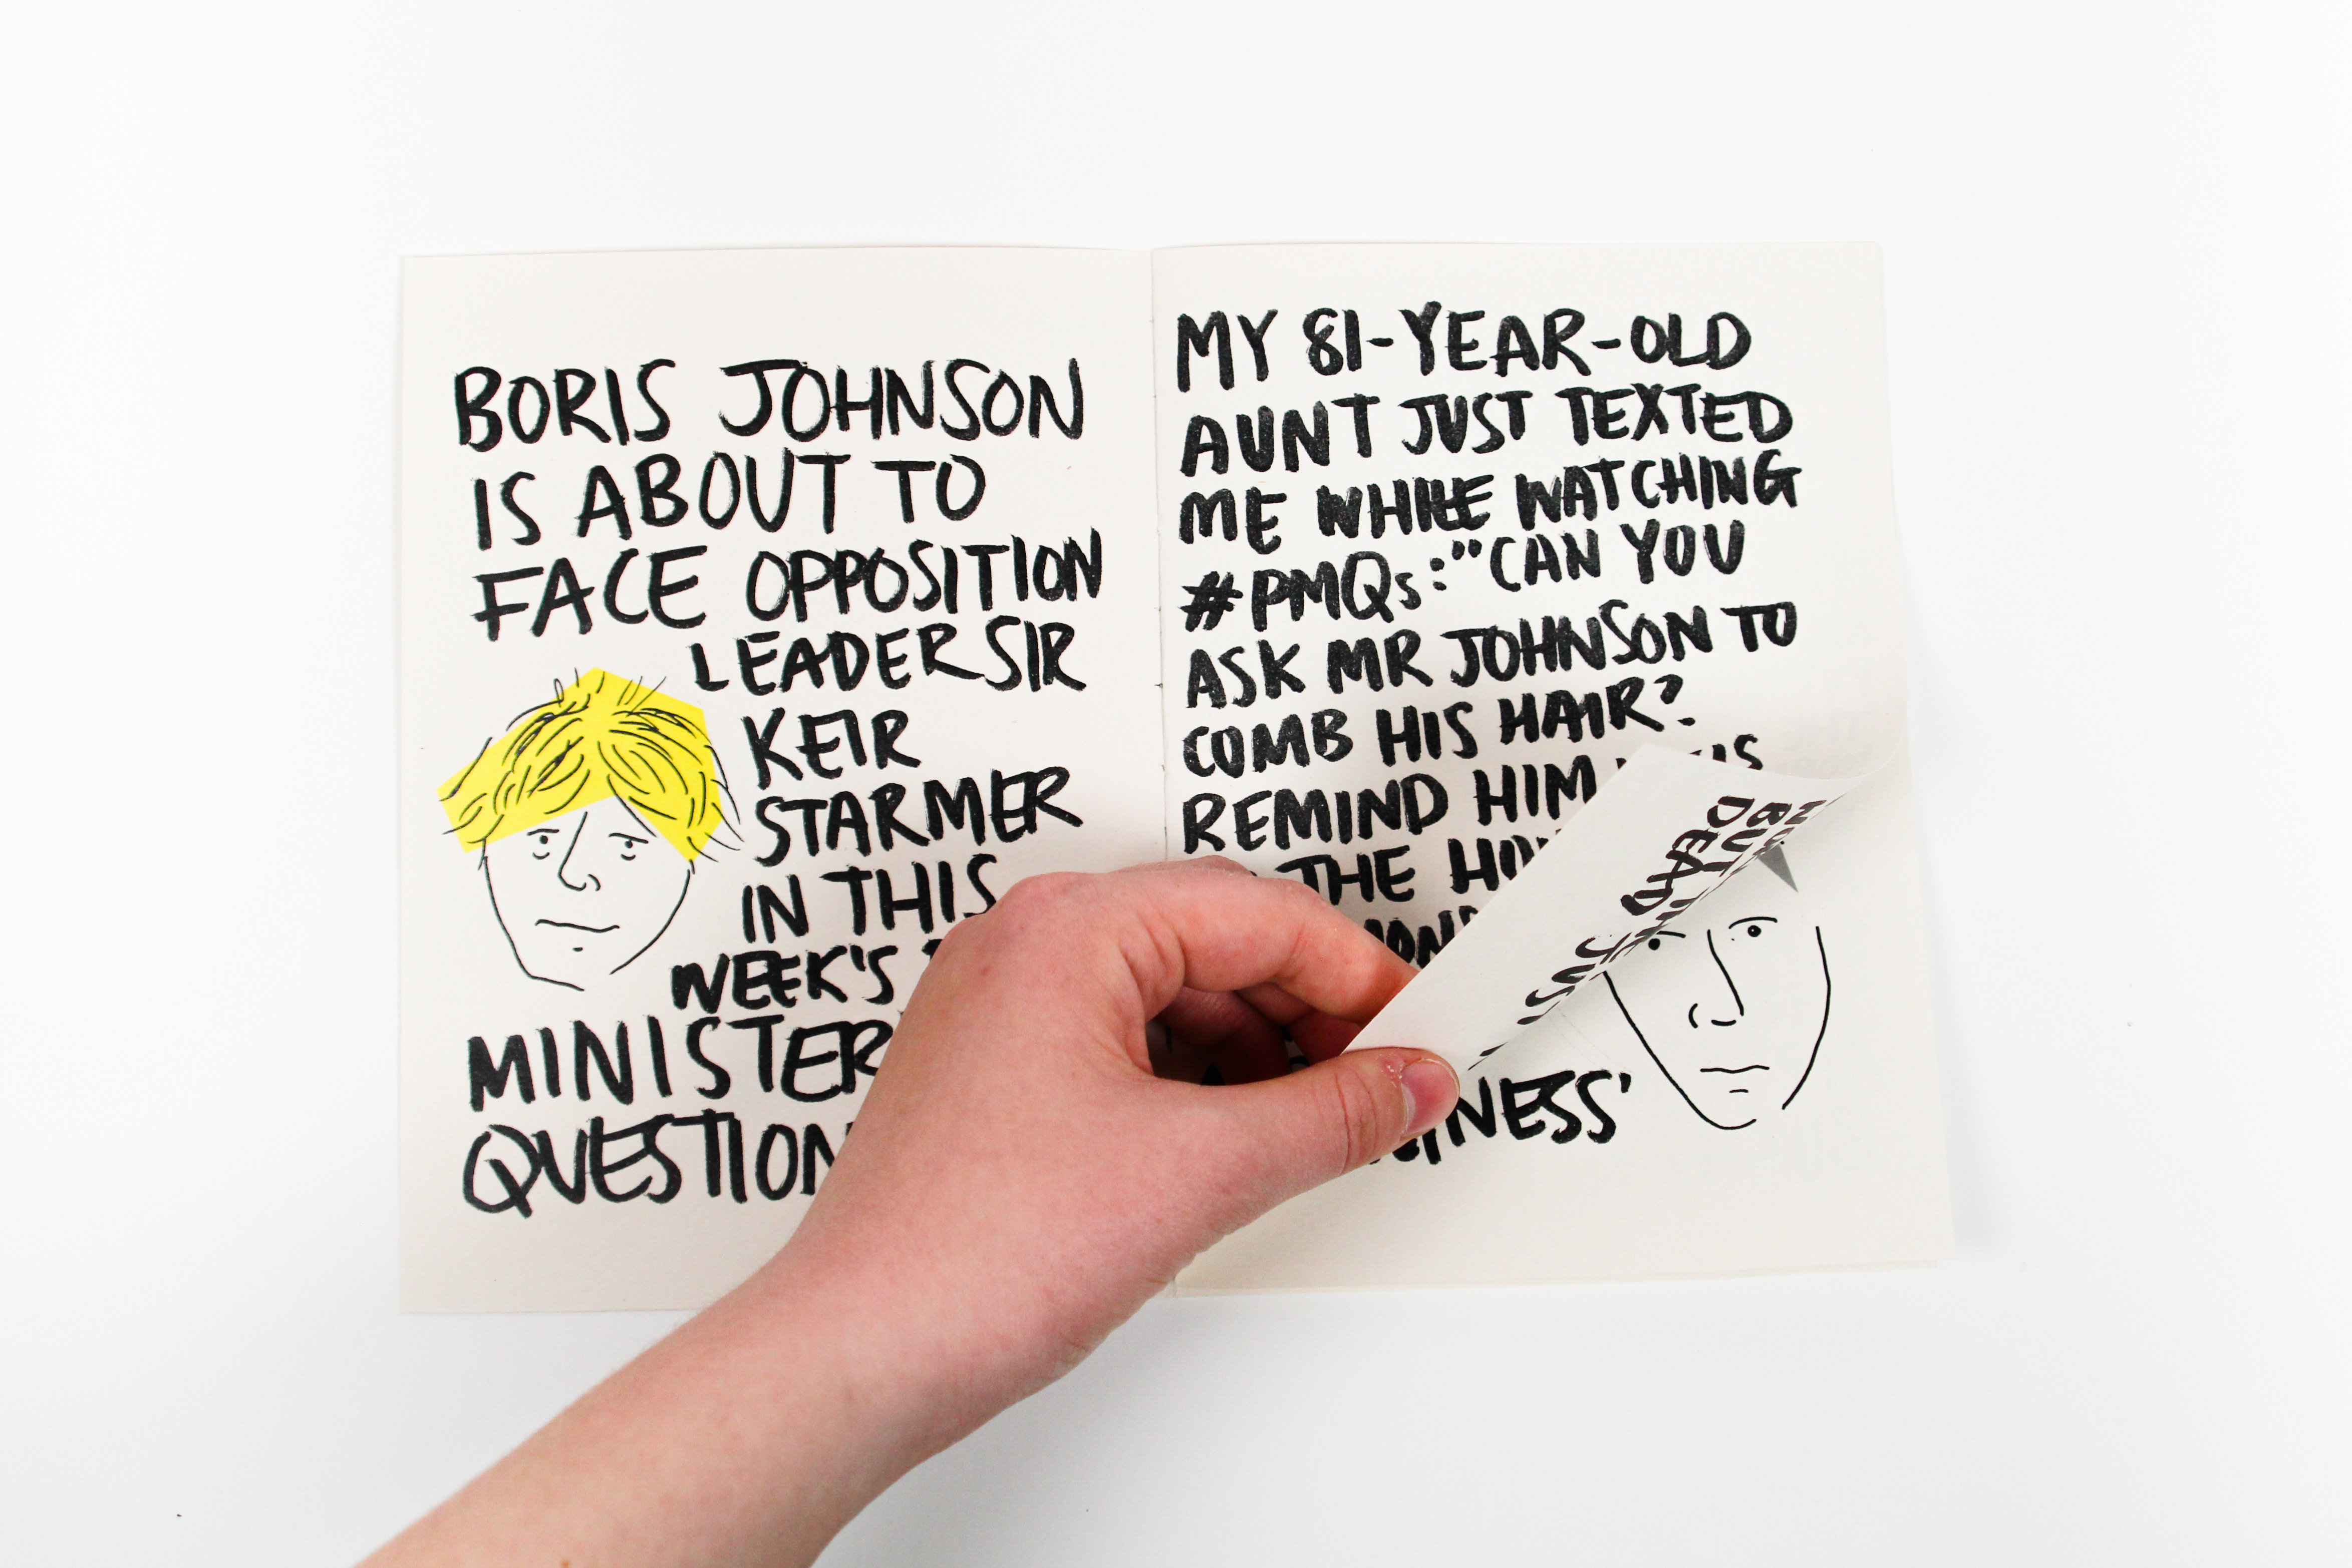 BORIS JOHNSON
IS ABOUT TO
FACE OPPOSITION
LEADER SIR
KEIR
STARMER
IN THIS
WEEK'S
MINISTER
QUESTION
MY 81-YEAR-OLD
AUNT JUST TEXTED
ME WHILE WATCHING
#PMQs:"CAN YOU
ASK MR JOHNSON TO
COMB HIS HAIR?
REMIND HIM
THE
NESS'
BUT
DEAR